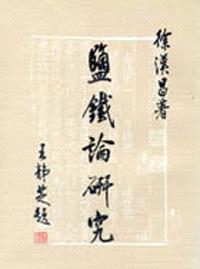 徐漢昌著
鹽鐵論研究
王靜芝題